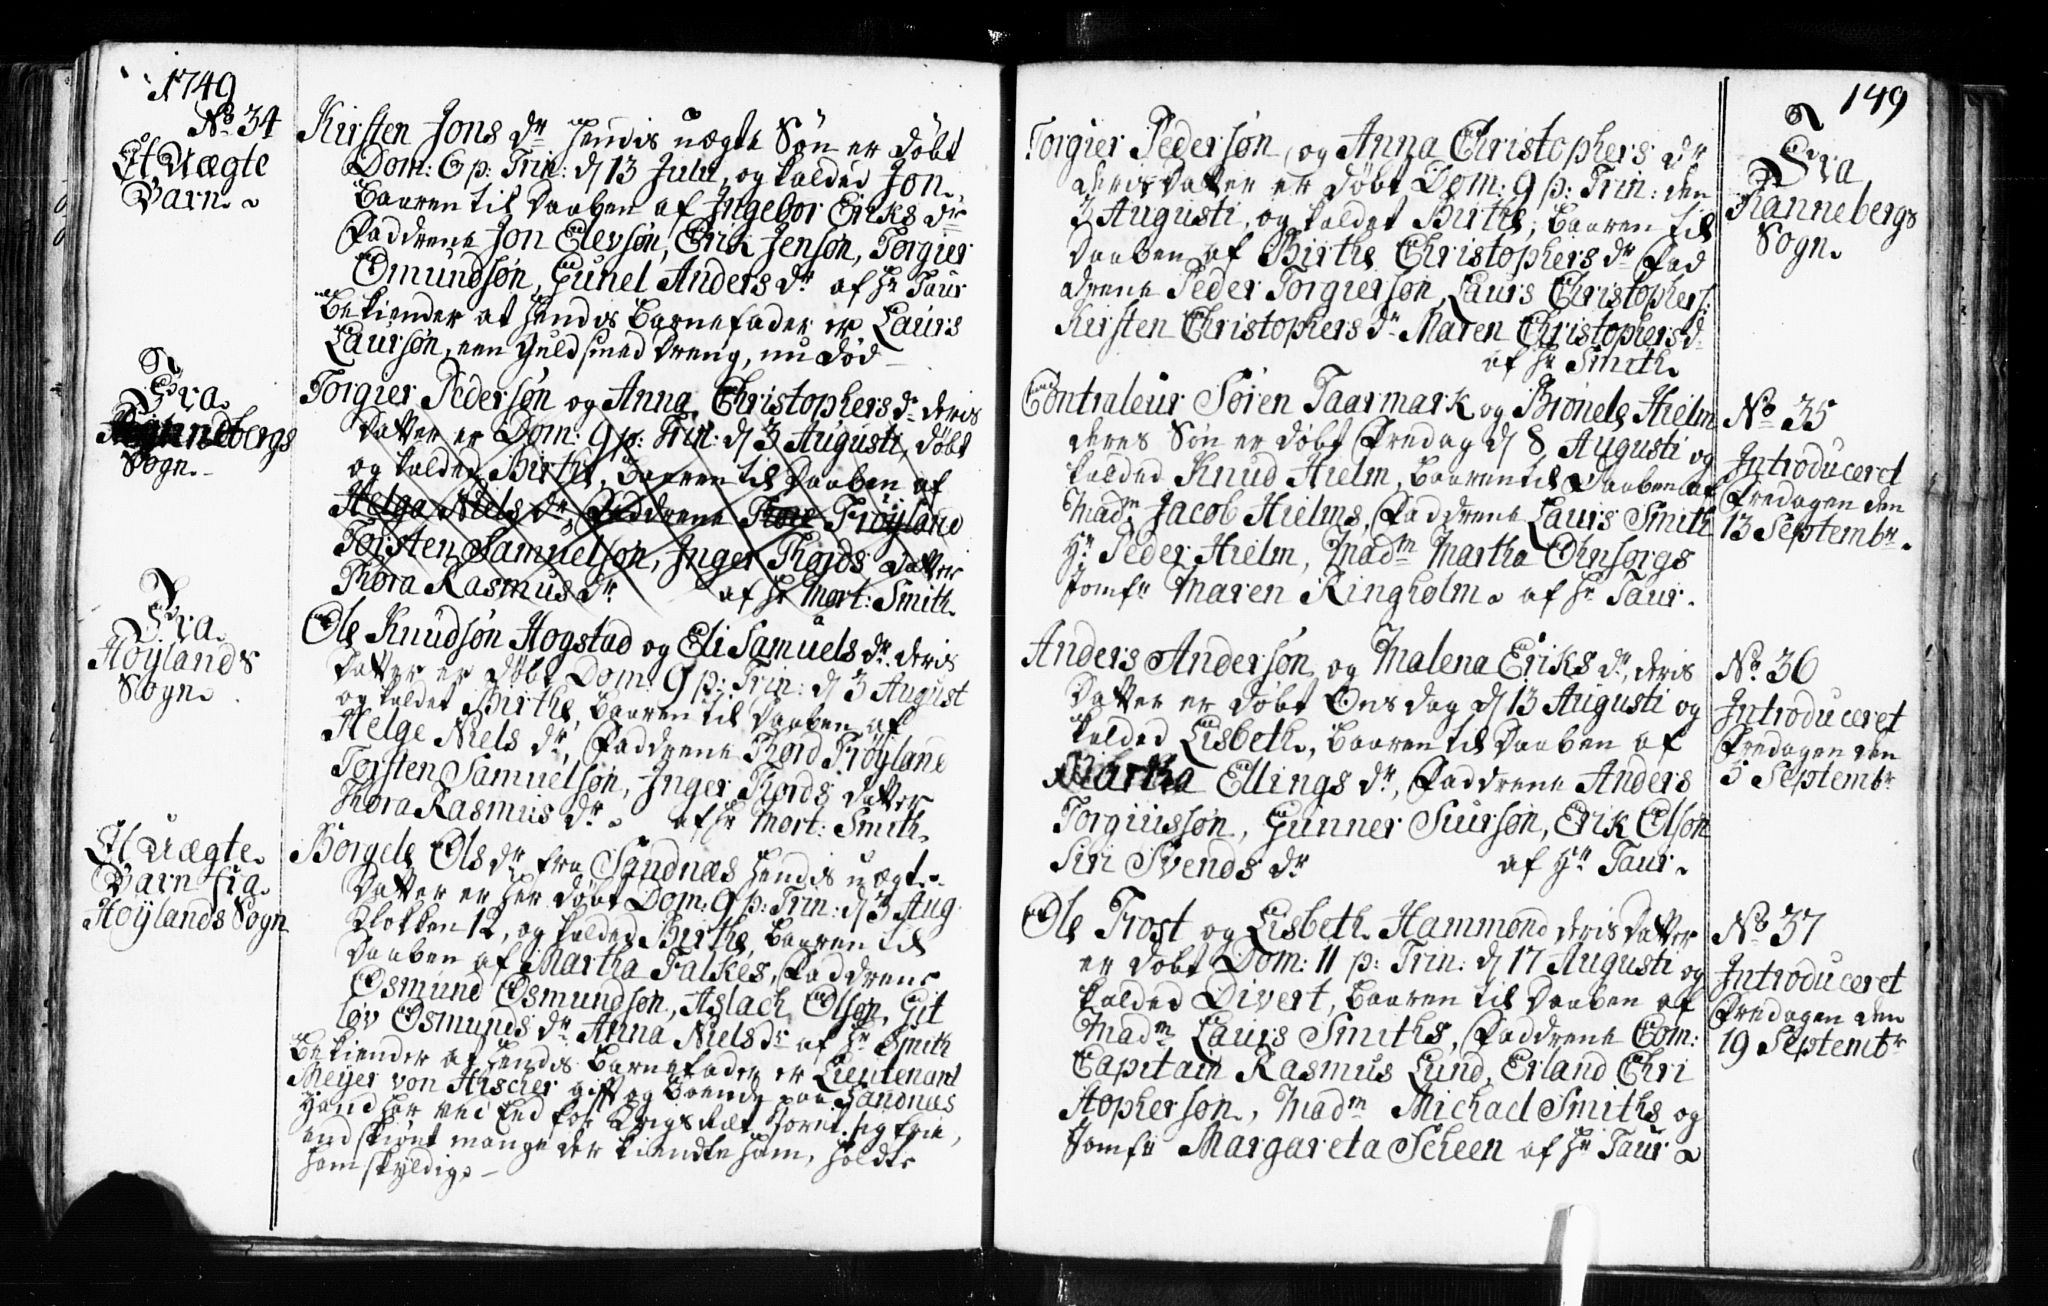 1749
No 34
Et Uægte
Barn
Kirsten Jons dr hendis uægte Søn er døbt
Dom: 6 p: Trin: d 13 Julii, og kalded Jon,
Baaren til Daaben af Ingebor Eriks dr
Faddrene Jon Elevsøn, Erik Jensøn, Torgier
Omundsøn, Gunel Anders dr af Hr Taur
Bekiender at hendis Barnefader er Laurs
Laursøn, een Guldsmed Dreng, nu død
Fra
Rannebergs
Sogn
Torgier Pedersøn og Anna Christophers dr deris
Datter er Dom: 9 p: Trin: d 3 Augusti, døbt
og kalded Birthe, Baaren til Daaben af
Helga Niels dr, Faddrene Tore Frøyland
Torsten Samuelsøn, Inger Thords Datter
Thora Rasmus dr af Hr Mort: Smith
Fra
Høylands
Sogn
Ole Knudsøn Hogstad og Eli Samuels dr deris
Datter er døbt Dom: 9 p: Trin: d 3 August
og kaldet Birthe, Baaren til Daaben af
Helge Niels dr, Faddrene Thord Frøyland
Torsten Samuelsøn, Inger Thords Datter
Thora Rasmus dr af Hr Mort: Smith
Et Uægte
Barn fra
Høylands Sogn
Børgele Ols dr fra Sandnæs hendis uægte
Datter er her døbt Dom: 9 p: Trin: d 3 Aug
Klokken 12, og kalded Birthe, Baaren til
Daaben af Martha Falkes, Faddrene
Osmund Osmundsøn, Aslach Olsøn, Git
løv Osmunds dr Anna Niels dr af Hr Smith
Bekiender at hendis Barnefader er Lieutenant
Meyer von Hischer gift og Boende paa Sandnæs
Hand har ved Eed for Krigsræt soret sig frie,
endskiønt mange der kiendte ham, holdte
ham skyldig
149
Torgier Pedersøn, og Anna Christophers dr
deris Datter er døbt Dom: 9 p: Trin: den
3 Augusti, og kaldet Birthe, Baaren til
Daaben af Birthe Christophers dr Fad
drene Peder Torgiersøn, Laurs Christophers:
Kirsten Christophers dr Maren Christophers d
af Hr Smith
Fra
Rannebergs
Sogn
Contraleur Søren Taarmark og Bronele Hielm
deres Søn er døbt Fredag d 8 Augusti og
kalded Knud Hielm, Baaren til Daaben af
Madm Jacob Hielms, Faddrene Laurs Smith
Hr Peder Hielm, Madm Martha Ohnsorgs
Jomfr Maren Ringholm af Hr Taur
No 35
Introduceret
Fredagen den
13 Septembr
Anders Andersøn og Malena Eriks dr, deris
Datter er døbt Onsdag d 13 Augusti og
kalded Lisbeth, Baaren til Daaben af
Martha Ellings dr, Faddrene Anders
Torgiusøn, Gunner Siursøn, Erik Olsøn
Siri Svends dr af Hr Taur
No 36
Introduceret
Fredagen den
5 Septembr
Ole Frost og Lisbeth Hammond deris Datter
er døbt Dom: 11 p: Trin: d 17 Augusti og
kalded Divert, Baaren til Daaben af
Madm Laurs Smiths, Faddrene Com:
Capitain Rasmus Lund, Erland Chri
stophersøn, Madm Michael Smiths og
Jomfr Margareta Scheen af Hr Taur
No 37
Introduceret
Fredagen den
19 Septembr